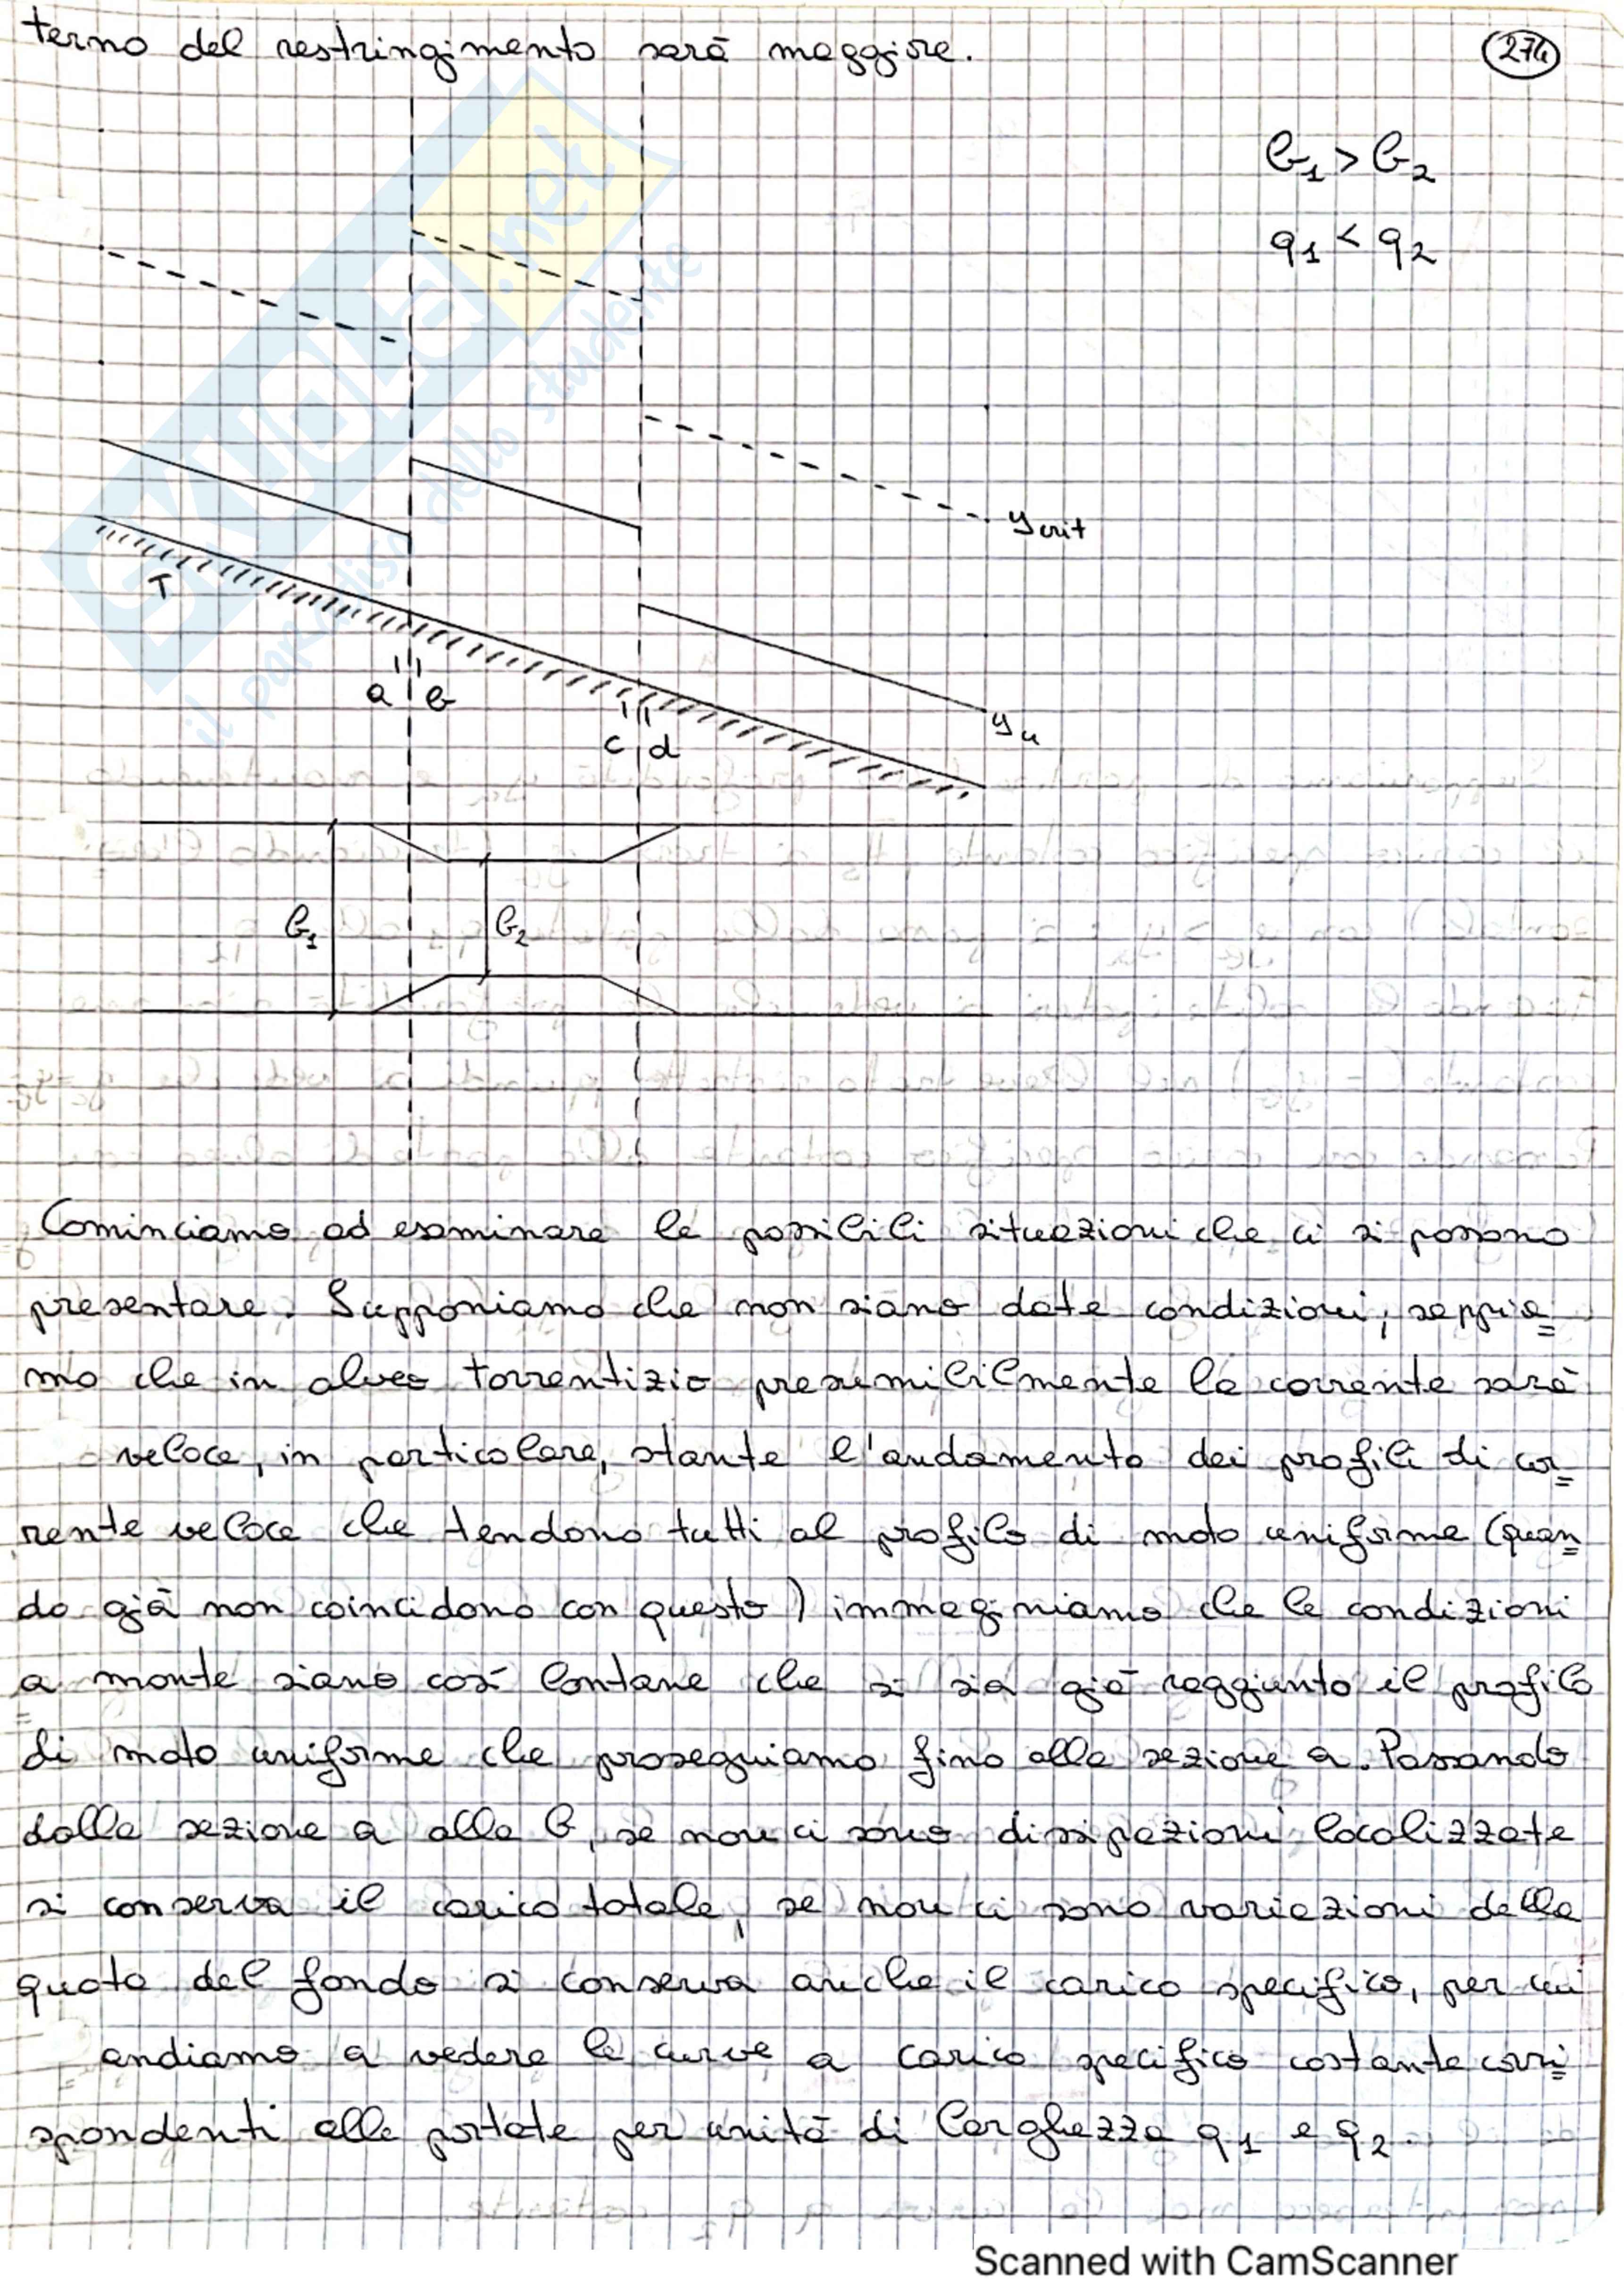 terno del restringimento sarà maggiore.
274
b1 > b2
q1 < q2
ycrit
T
a b
yu
c d
b1
b2
Cominciamo ad esaminare le possibili situazioni che ci si possono
presentare. Supponiamo che non siano date condizioni, sappia=
mo che in alveo torrentizio presumibilmente la corrente sarà
veloce, in particolare, stante l'andamento dei profili di cor=
rente veloce che tendono tutti al profilo di moto uniforme (quan=
do già non coincidono con questo) immaginiamo che le condizioni
a monte siano così lontane che si sia già raggiunto il profilo
di moto uniforme che proseguiamo fino alla sezione a. Passando
dalla sezione a alla b, se non ci sono dissipazioni localizzate
si conserva il carico totale, se non ci sono variazioni della
quota del fondo si conserva anche il carico specifico, per cui
andiamo a vedere le curve a carico specifico costante corri=
spondenti alle portate per unità di larghezza q1 e q2.
SKUOLA.net
il paradiso dello studente
Scanned with CamScanner